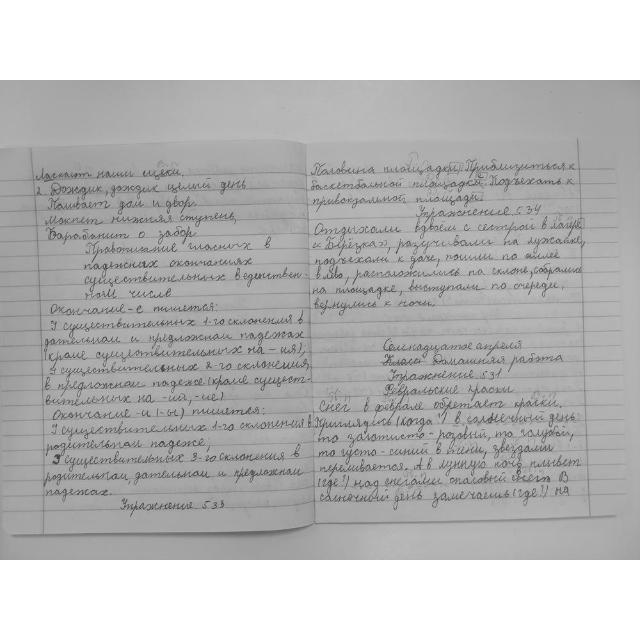 Ласкает наши щёки.
2. Дождик, дождик целый день
Поливает дом и двор.
Мокнет нижняя ступень,
Барабанит о забор
Правописание гласных в
падежных окончаниях
существительных в единствен-
ном числе
Окончание -е пишется:
У существительных 1-го склонения в
дательном и предложном падежах
(кроме существительных на -ия),
у существительных 2-го склонения
в предложном падеже (кроме сущест-
вительных на -ий, -ие)
Окончание -и (-ы) пишется:
У существительных 1-го склонения в
родительном падеже,
У существительных 3-го склонения в
родительном дательном и предложном
падежах.
Упражнение 533
Половина площадки. Приблизиться к
баскетбольной площадке. Подъехать к
привокзальной площади
Упражнение 534
Отдыхали вдвоём с сестрой в лагере
«Берёзка», разучивали на лужайке,
подъехали к даче, пошли по аллее
влево, расположились на склоне, собрались
на площадке, выступали по очереди,
вернулись к ночи.
Семнадцатое апреля
Класс Домашняя работа
Упражнение 531
Февральские краски
Снег в феврале обретает краски.
Приглядись (когда?) в солнечный день:
то золотисто-розовый, то голубой,
то густо-синий в тени, звёздами
переливается. А в лунную ночь плывёт
(где?) над снегами опаловый свет. В
солнечный день замечаешь (где?) на